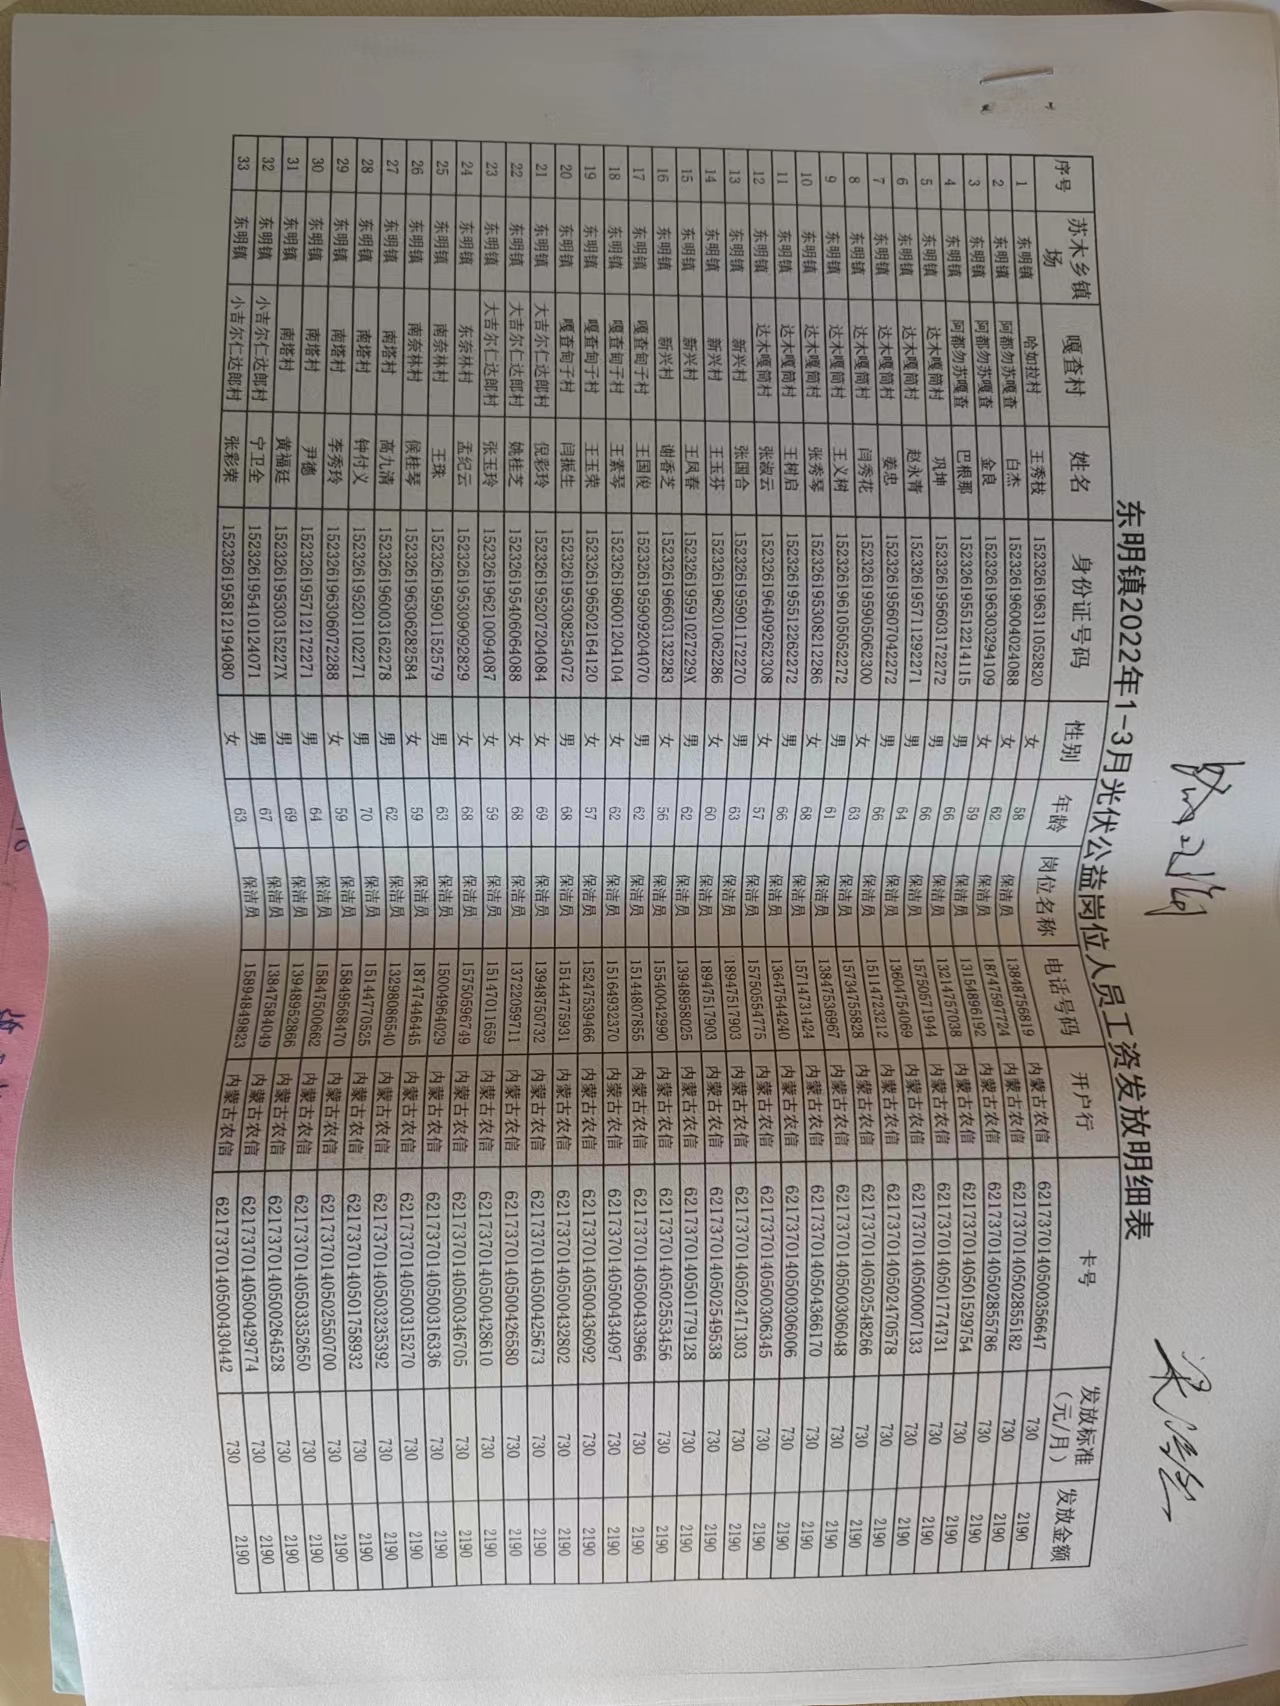 东明镇2022年1-3月光伏公益岗位人员工资发放明细表
序号 苏木乡镇场 嘎查村 姓名 身份证号码 性别 年龄 岗位名称 电话号码 开户行 卡号 发放标准（元/月） 发放金额
1 东明镇 哈如拉村 王秀枝 152326196311052820 女 58 保洁员 13848756819 内蒙古农信 6217370140500356647 730 2190
2 东明镇 阿都勿苏嘎查 白杰 152326196004024088 女 62 保洁员 18747597724 内蒙古农信 6217370140502855182 730 2190
3 东明镇 阿都勿苏嘎查 金良 152326196303294109 女 59 保洁员 13154896192 内蒙古农信 6217370140502855786 730 2190
4 东明镇 阿都勿苏嘎查 巴根那 152326195512214115 男 66 保洁员 13214757038 内蒙古农信 6217370140501529754 730 2190
5 东明镇 达木嘎筒村 巩坤 152326195603172272 男 66 保洁员 15750571944 内蒙古农信 6217370140501774731 730 2190
6 东明镇 达木嘎筒村 赵永青 152326195711292271 男 64 保洁员 13604754069 内蒙古农信 6217370140500007133 730 2190
7 东明镇 达木嘎筒村 姜忠 152326195607042272 男 66 保洁员 15114723212 内蒙古农信 6217370140502470578 730 2190
8 东明镇 达木嘎筒村 闫秀花 152326195905062300 女 63 保洁员 15734755828 内蒙古农信 6217370140502548266 730 2190
9 东明镇 达木嘎筒村 王义树 152326196105052272 男 61 保洁员 13847536967 内蒙古农信 6217370140500306048 730 2190
10 东明镇 达木嘎筒村 张秀琴 152326195308212286 女 68 保洁员 15714731424 内蒙古农信 6217370140504366170 730 2190
11 东明镇 达木嘎筒村 王树启 152326195512262272 男 66 保洁员 13647544240 内蒙古农信 6217370140500306006 730 2190
12 东明镇 达木嘎筒村 张淑云 152326196409262308 女 57 保洁员 15750554775 内蒙古农信 6217370140500306345 730 2190
13 东明镇 新兴村 张国合 152326195901172270 男 63 保洁员 18947517903 内蒙古农信 6217370140502471303 730 2190
14 东明镇 新兴村 王玉芬 152326196201062286 女 60 保洁员 18947517903 内蒙古农信 6217370140502549538 730 2190
15 东明镇 新兴村 王凤春 15232619591027229X 男 62 保洁员 13948958025 内蒙古农信 6217370140501779128 730 2190
16 东明镇 新兴村 谢香芝 152326196603132283 女 56 保洁员 15540042990 内蒙古农信 6217370140502553456 730 2190
17 东明镇 嘎查甸子村 王国俊 152326195909204070 男 62 保洁员 15144807835 内蒙古农信 6217370140500433966 730 2190
18 东明镇 嘎查甸子村 王素琴 152326196001204104 女 62 保洁员 15164932370 内蒙古农信 6217370140500434097 730 2190
19 东明镇 嘎查甸子村 王玉荣 152326196502164120 女 57 保洁员 15247539466 内蒙古农信 6217370140500436092 730 2190
20 东明镇 嘎查甸子村 闫振生 152326195308254072 男 68 保洁员 15144775931 内蒙古农信 6217370140500432802 730 2190
21 东明镇 大吉尔仁达郎村 倪彩玲 152326195207204084 女 69 保洁员 13948750732 内蒙古农信 6217370140500425673 730 2190
22 东明镇 大吉尔仁达郎村 姚桂芝 152326195406064088 女 68 保洁员 13722059711 内蒙古农信 6217370140500426580 730 2190
23 东明镇 大吉尔仁达郎村 张玉玲 152326196210094087 女 59 保洁员 15147011659 内蒙古农信 6217370140500428610 730 2190
24 东明镇 东奈林村 孟纪云 152326195309092829 女 68 保洁员 15750596749 内蒙古农信 6217370140500346705 730 2190
25 东明镇 南奈林村 王珠 152326195901152579 男 63 保洁员 15004964029 内蒙古农信 6217370140500316336 730 2190
26 东明镇 南奈林村 侯桂琴 152326196306282584 女 59 保洁员 18747446445 内蒙古农信 6217370140500315270 730 2190
27 东明镇 南塔村 高九清 152326196003162278 男 62 保洁员 13298086540 内蒙古农信 6217370140503235392 730 2190
28 东明镇 南塔村 钟付义 152326195201102271 男 70 保洁员 15114770525 内蒙古农信 6217370140501758932 730 2190
29 东明镇 南塔村 李秀玲 152326196306072288 女 59 保洁员 15849568470 内蒙古农信 6217370140502550700 730 2190
30 东明镇 南塔村 尹德 152326195712172271 男 64 保洁员 15847500662 内蒙古农信 6217370140503352650 730 2190
31 东明镇 南塔村 黄福廷 15232619530315227X 男 69 保洁员 13948952866 内蒙古农信 6217370140500264528 730 2190
32 东明镇 小吉尔仁达郎村 宁卫全 152326195410124071 男 67 保洁员 13847584049 内蒙古农信 6217370140500429774 730 2190
33 东明镇 小吉尔仁达郎村 张彩荣 152326195812194080 女 63 保洁员 15894849823 内蒙古农信 6217370140500430442 730 2190